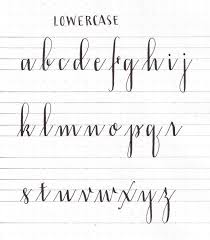 LOWERCASE
a b c d e f g h i j
k l m n o p q r
s t u v w x y z